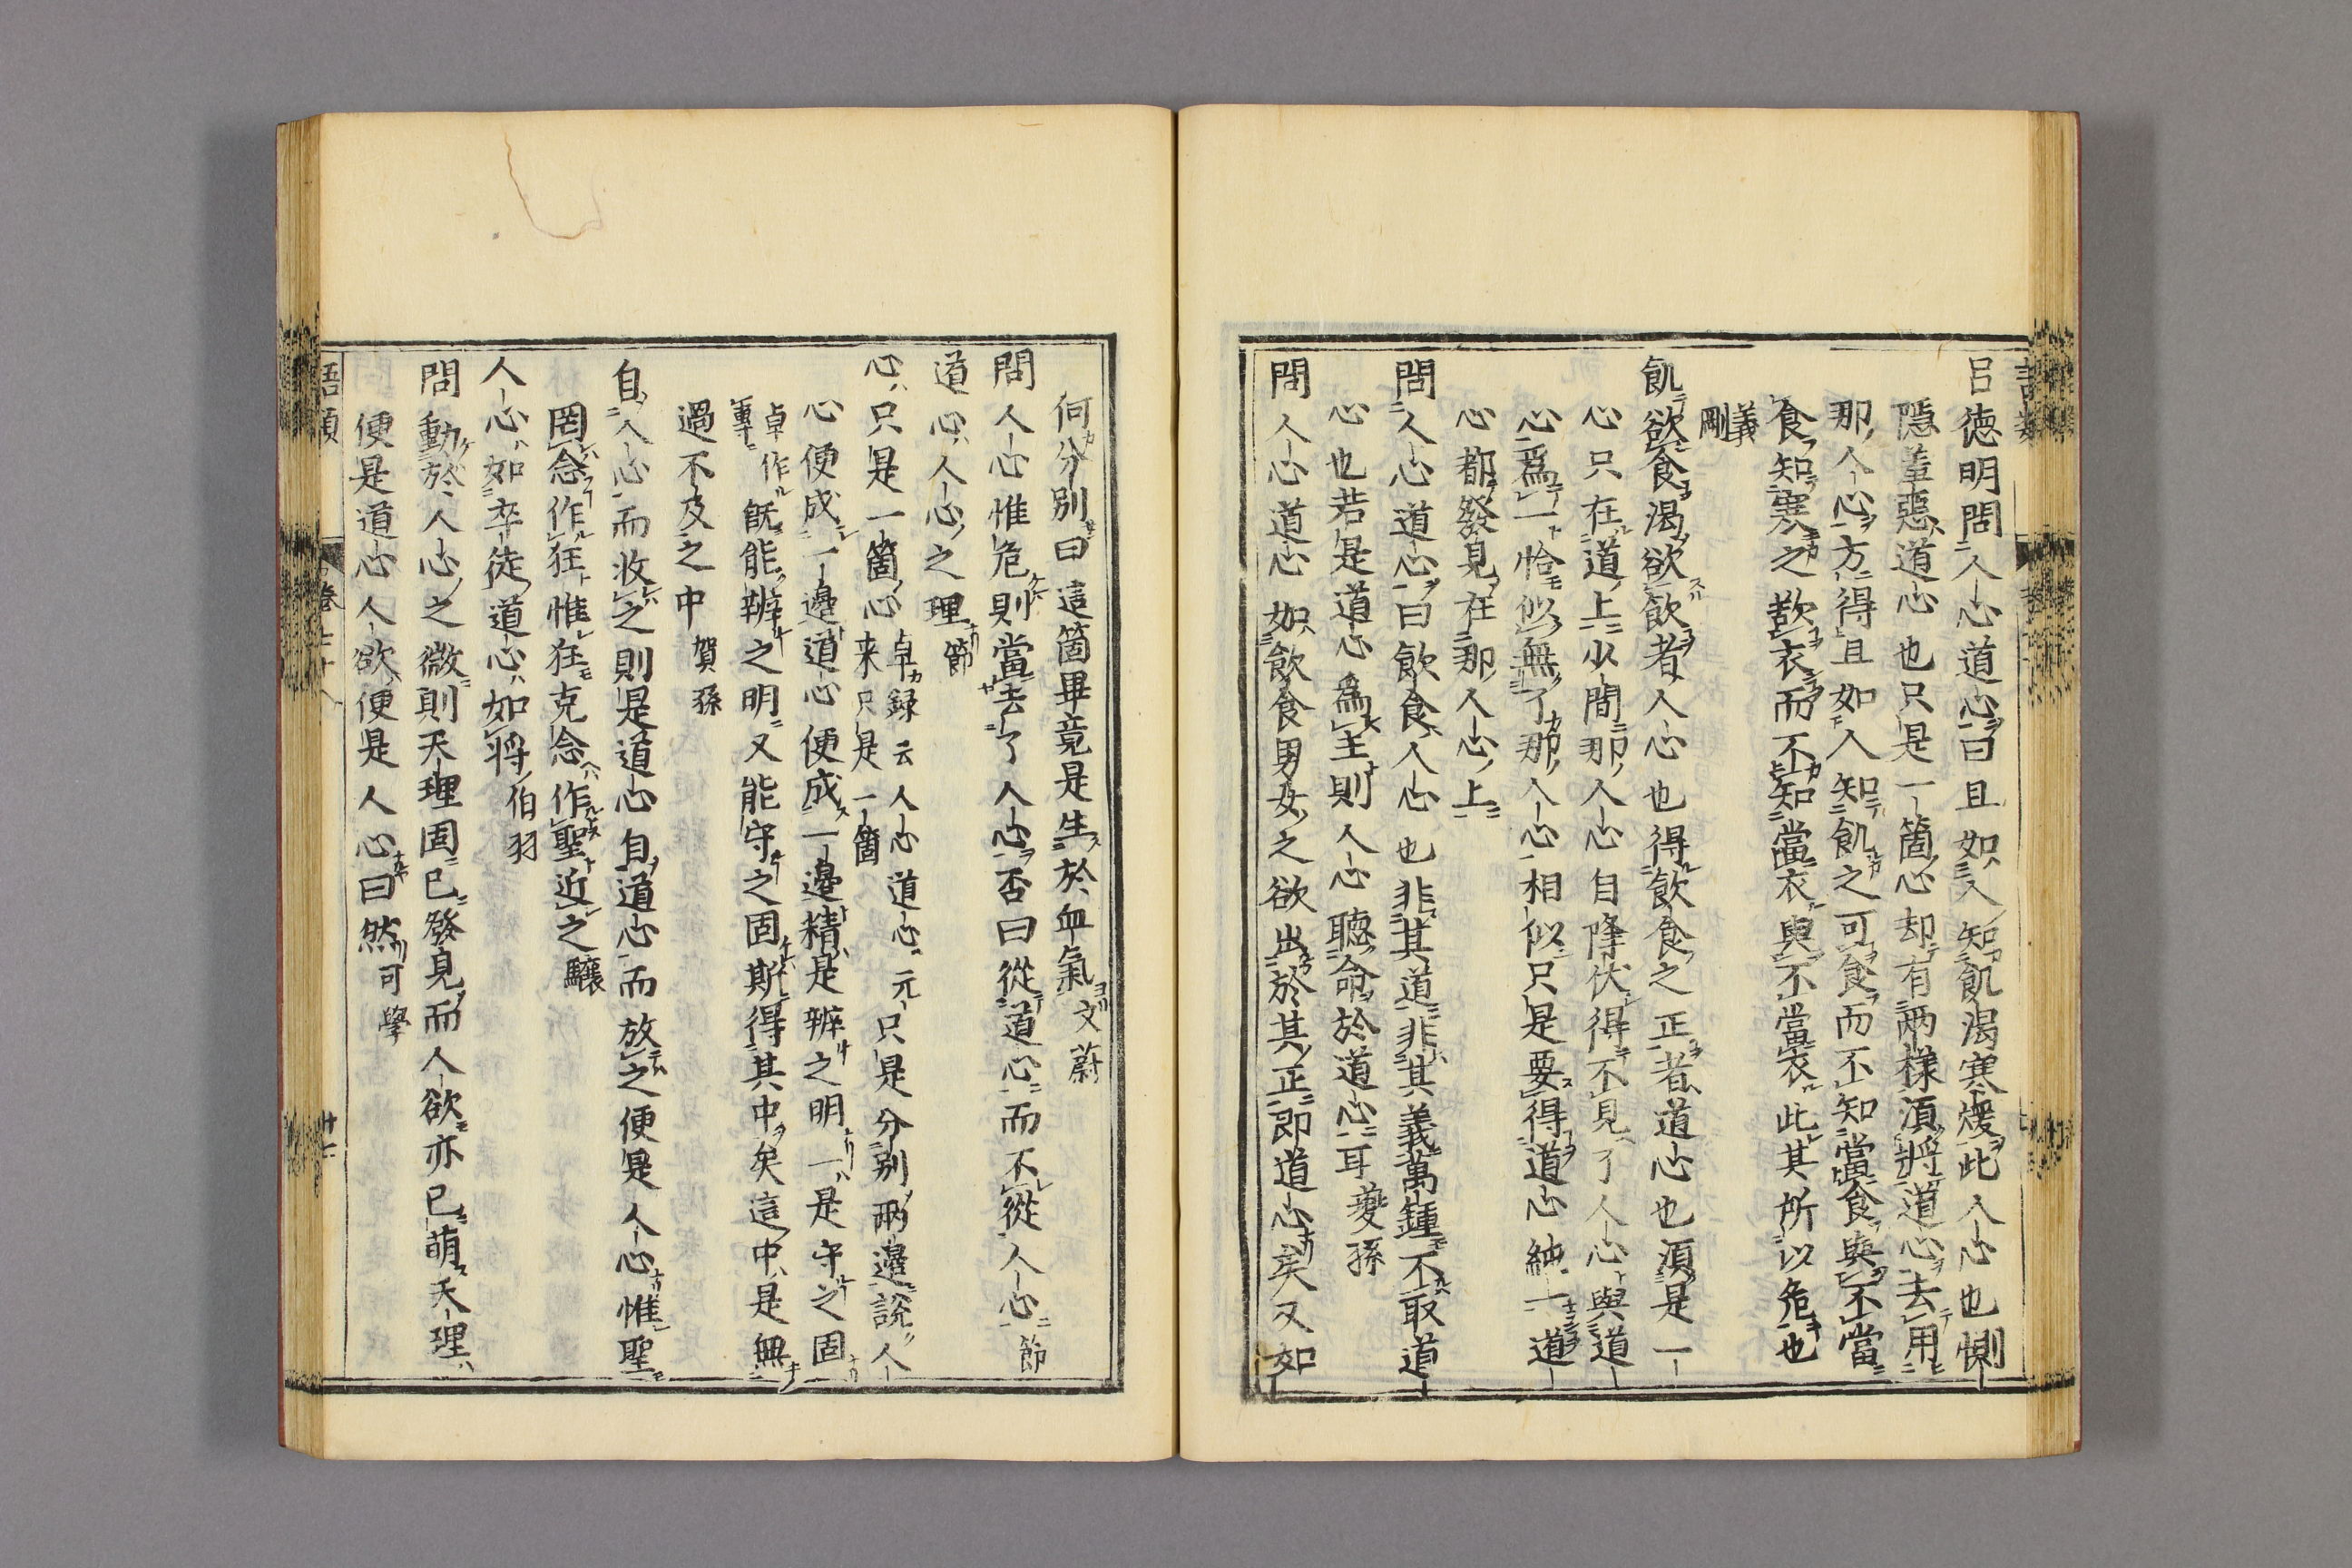 呂德明問人心道心曰且如人知飢渴寒煖此人心也惻
隱羞惡道心也只是一箇心却有兩樣須將道心去用
那人心方得且如人知飢之可食而不知當食與不當
食知寒之欲衣而不知當衣與不當衣此其所以危也
義剛
飢欲食渴欲飲者人心也得飲食之正者道心也須是一
心只在道上少間那人心自降伏得不見了人心與道
心爲一恰似無了那人心相似只是要得道心純一道
心都發見在那人心上
問人心道心曰飲食人心也非其道非其義萬鍾不取道
心也若是道心爲主則人心聽命於道心耳夔孫
問人心道心如飲食男女之欲出於其正即道心矣又如
何分別曰這箇畢竟是生於血氣文蔚
問人心惟危則當去了人心否曰從道心而不從人心節
道心人心之理節
心只是一箇心卓録云人心道心元來只是一箇只是分別兩邊說人
心便成一邊道心便成一邊精是辨之明一是守之固
卓作專既能辨之明又能守之固斯得其中矣這中是無
過不及之中賀孫
自人心而收之則是道心自道心而放之便是人心惟聖
罔念作狂惟狂克念作聖近之驤
人心如卒徒道心如將伯羽
問動於人心之微則天理固已發見而人欲亦已萌天理
便是道心人欲便是人心曰然可學
語類
卷七十八
廿七